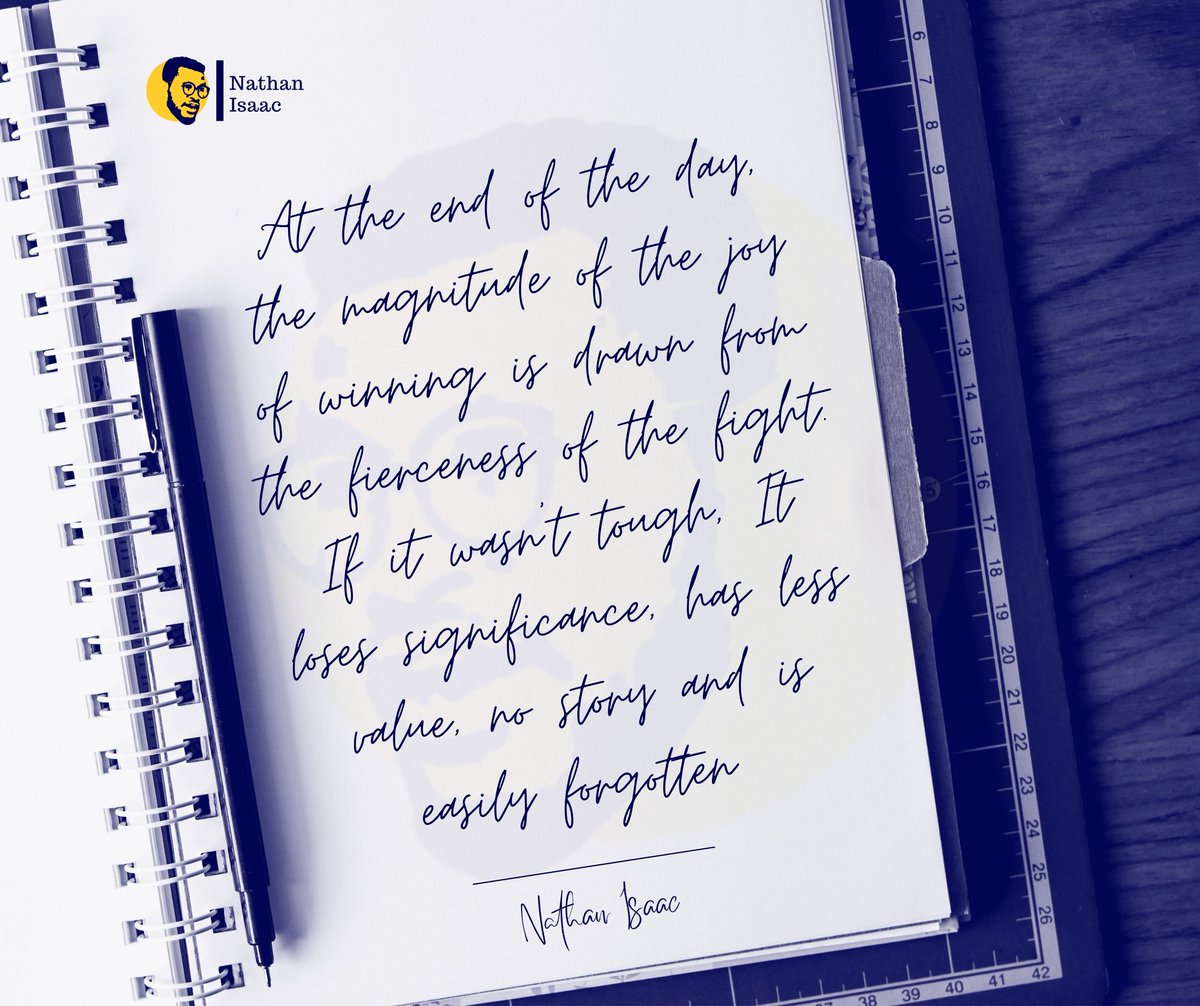 Nathan
Isaac
At the end of the day,
the magnitude of the joy
of winning is drawn from
the fierceness of the fight.
If it wasn't tough, It
loses significance, has less
value, no story and is
easily forgotten
Nathan Isaac
6
7
8
9
10
11
12
13
14
15
16
17
18
19
20
21
22
23
24
25
26
15
37
38
39
40
41
42